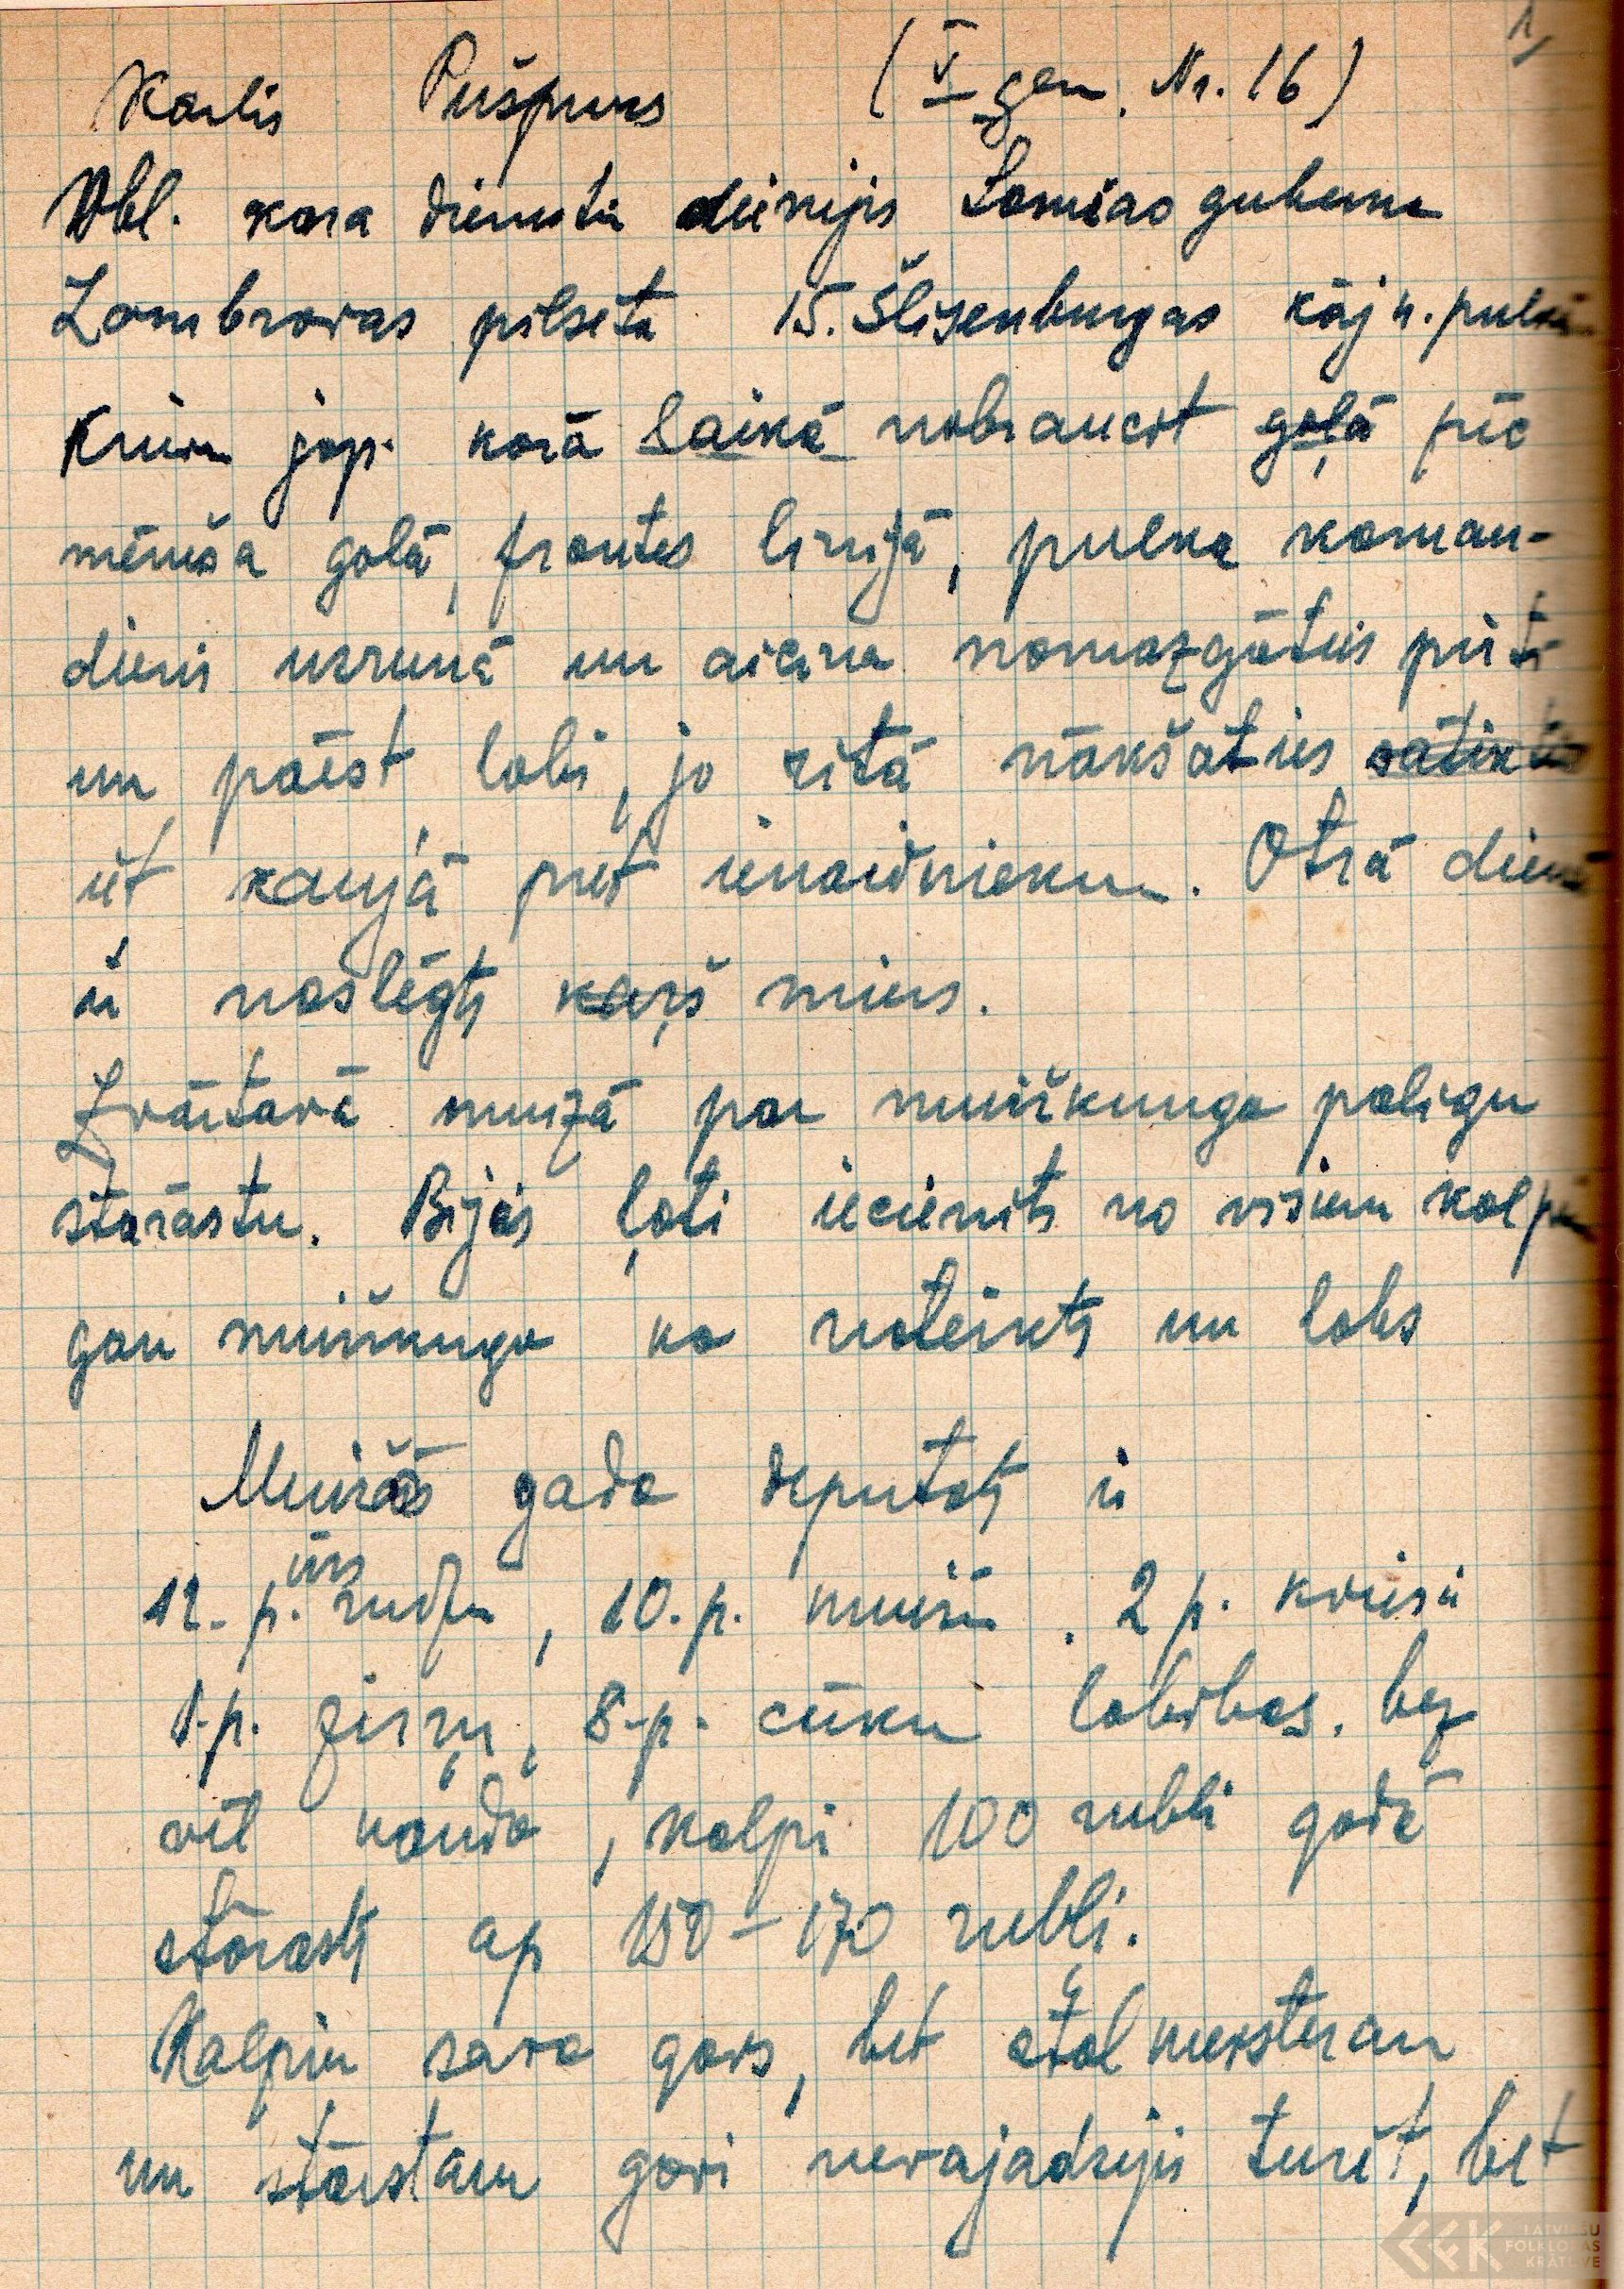 1,
Karlis Pušpurs (V gen. Nr. 16)
Obl. kara dienestu dienijis Lomžas guberna
Zombrovas pilsētā 15. Šliselburgas kājn. pulkā
Krievu jap. karā laikā nobraucot galā pēc
mēneša galā, frontes līnijā, pulka koman-
dieris uzrunā un aicina nomazgāties pirtī
un paēst labi, jo rītā nākšoties satikties
iet kaujā pret ienaidnieku. Otrā dienā
ir noslēgts karš miers.
muižā par muižkunga paligu
stārastu. Bijis ļoti iecienīts no visiem kalpiem
gan muižkunga ka noteikts un labs
Muižas gada deputāts ir
12. p. rudzu, 10. p. miežu, 2 p. kviešu
1. p. zirņu, 8. p. cūku labības. bez
vēl nauda, kalpi 100 rubli gadā
stārasts ap 150 – 170 rubļi.
Kalpiem sava govs, bet stalmeisteram
un stārstam govi nevajadzējis turēt, bet
LATVIEŠU
FOLKLORAS
KRĀTUVE